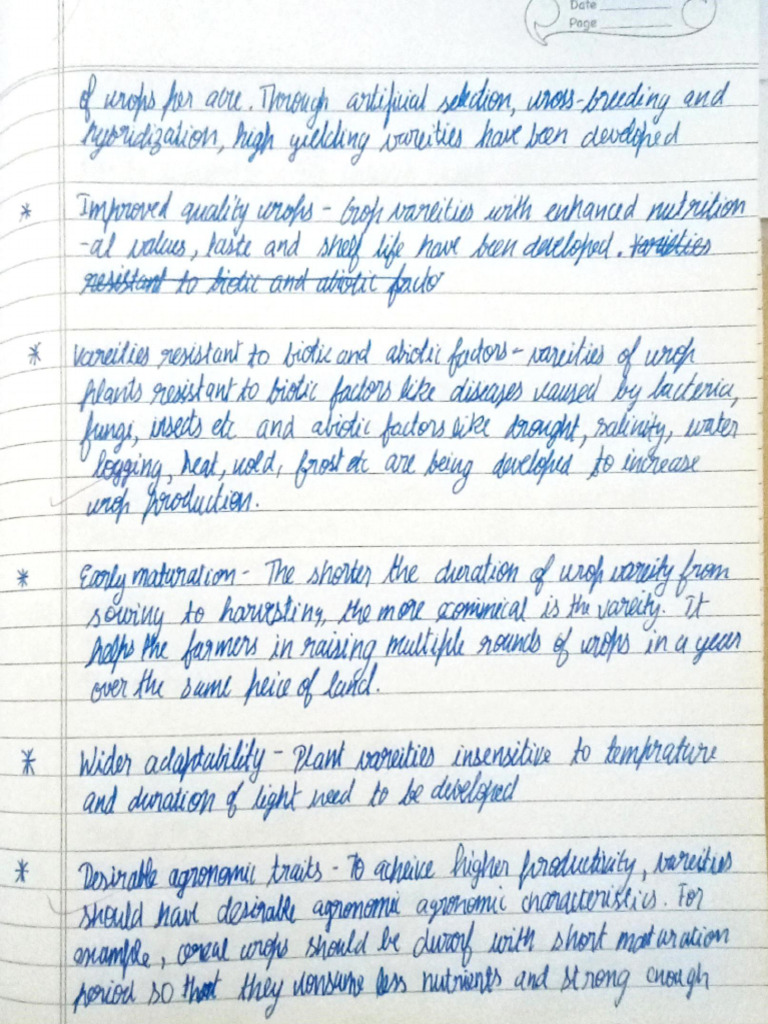 Date
Page
of crops per acre. Through artificial selection, cross-breeding and
hybridization, high yielding vareities have been developed
* Improved quality crops - Crop vareities with enhanced nutrition
-al values, taste and shelf life have been developed. Varieties
resistant to biotic and abiotic facto
* Vareities resistant to biotic and abiotic factors - vareities of crop
plants resistant to biotic factors like diseases caused by bacteria,
fungi, insects etc and abiotic factors like drought, salinity, water
logging, heat, cold, frost etc are being developed to increase
crop production.
* Early maturation - The shorter the duration of crop vareity from
sowing to harvesting, the more econmical is the vareity. It
helps the farmers in raising multiple rounds of crops in a year
over the same peice of land.
* Wider adaptability - Plant vareities insensitive to temprature
and duration of light need to be developed
* Desirable agronomic traits - To acheive higher productivity, vareities
should have desirable agronomic agronomic characteristics. For
example, cereal crops should be dwarf with short maturation
period so that they consume less nutrients and strong enough